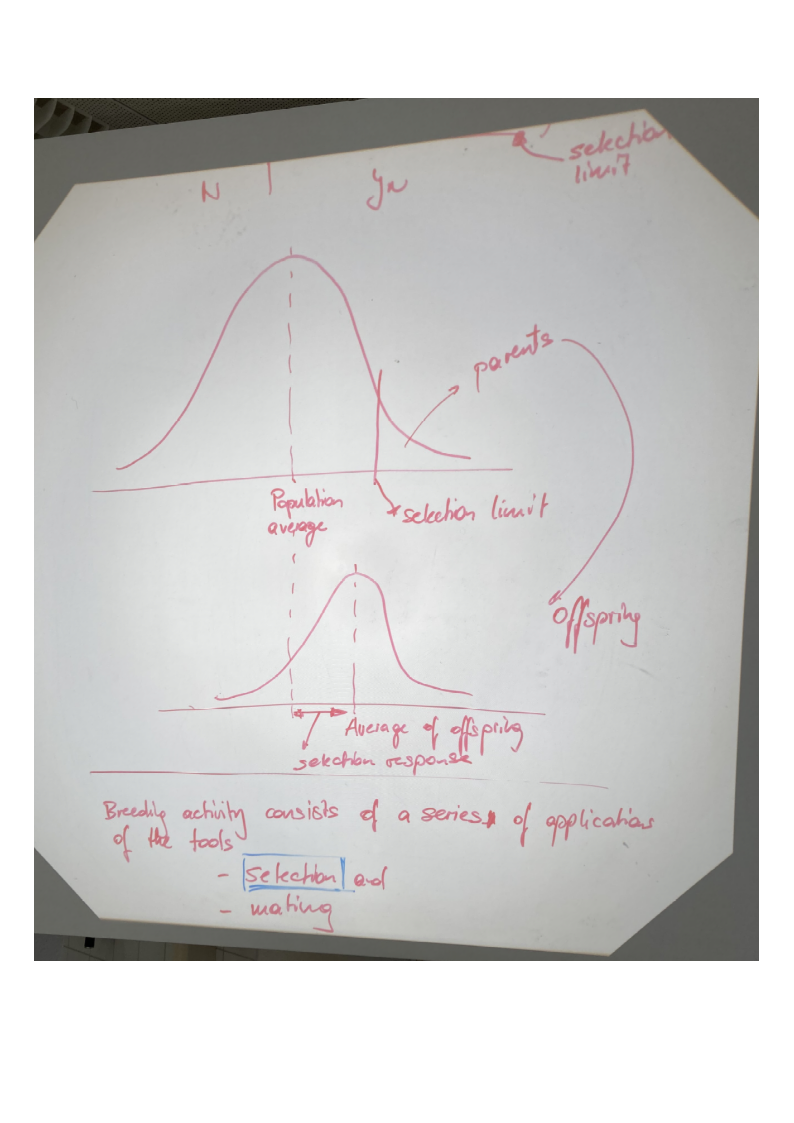 selection
limit
N
yN
parents
Population
average
selection limit
Offspring
Average of offspring
selection response
Breeding activity consists of a series of applications
of the tools
- selection and
- mating